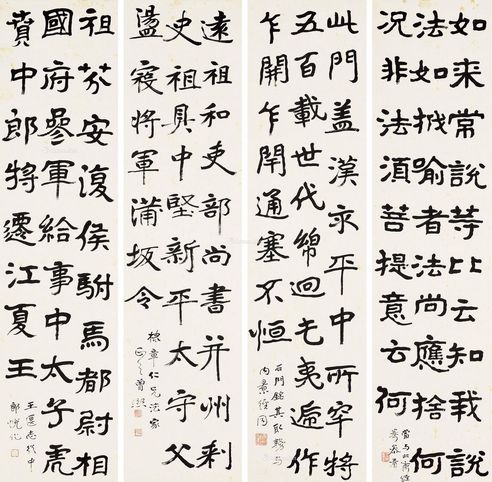 如来常說䓁比云知我說
法如栰喻者法尚應捨何
況非法須菩提意云何
此門盖漢永平中所穿將
五百載世代綿迴屯夷遞作
乍開乍閉通塞不恒
石門銘其取勢与
内景經同
遠祖和吏部尚書并州刺
史祖具中堅新平太守父
盪寇將軍蒲坂令
標章仁兄法家
正之曾熙
祖芬安復侯駙馬都尉相
國府參軍給事中太子虎
賁中郎將遷江夏王
王偃志